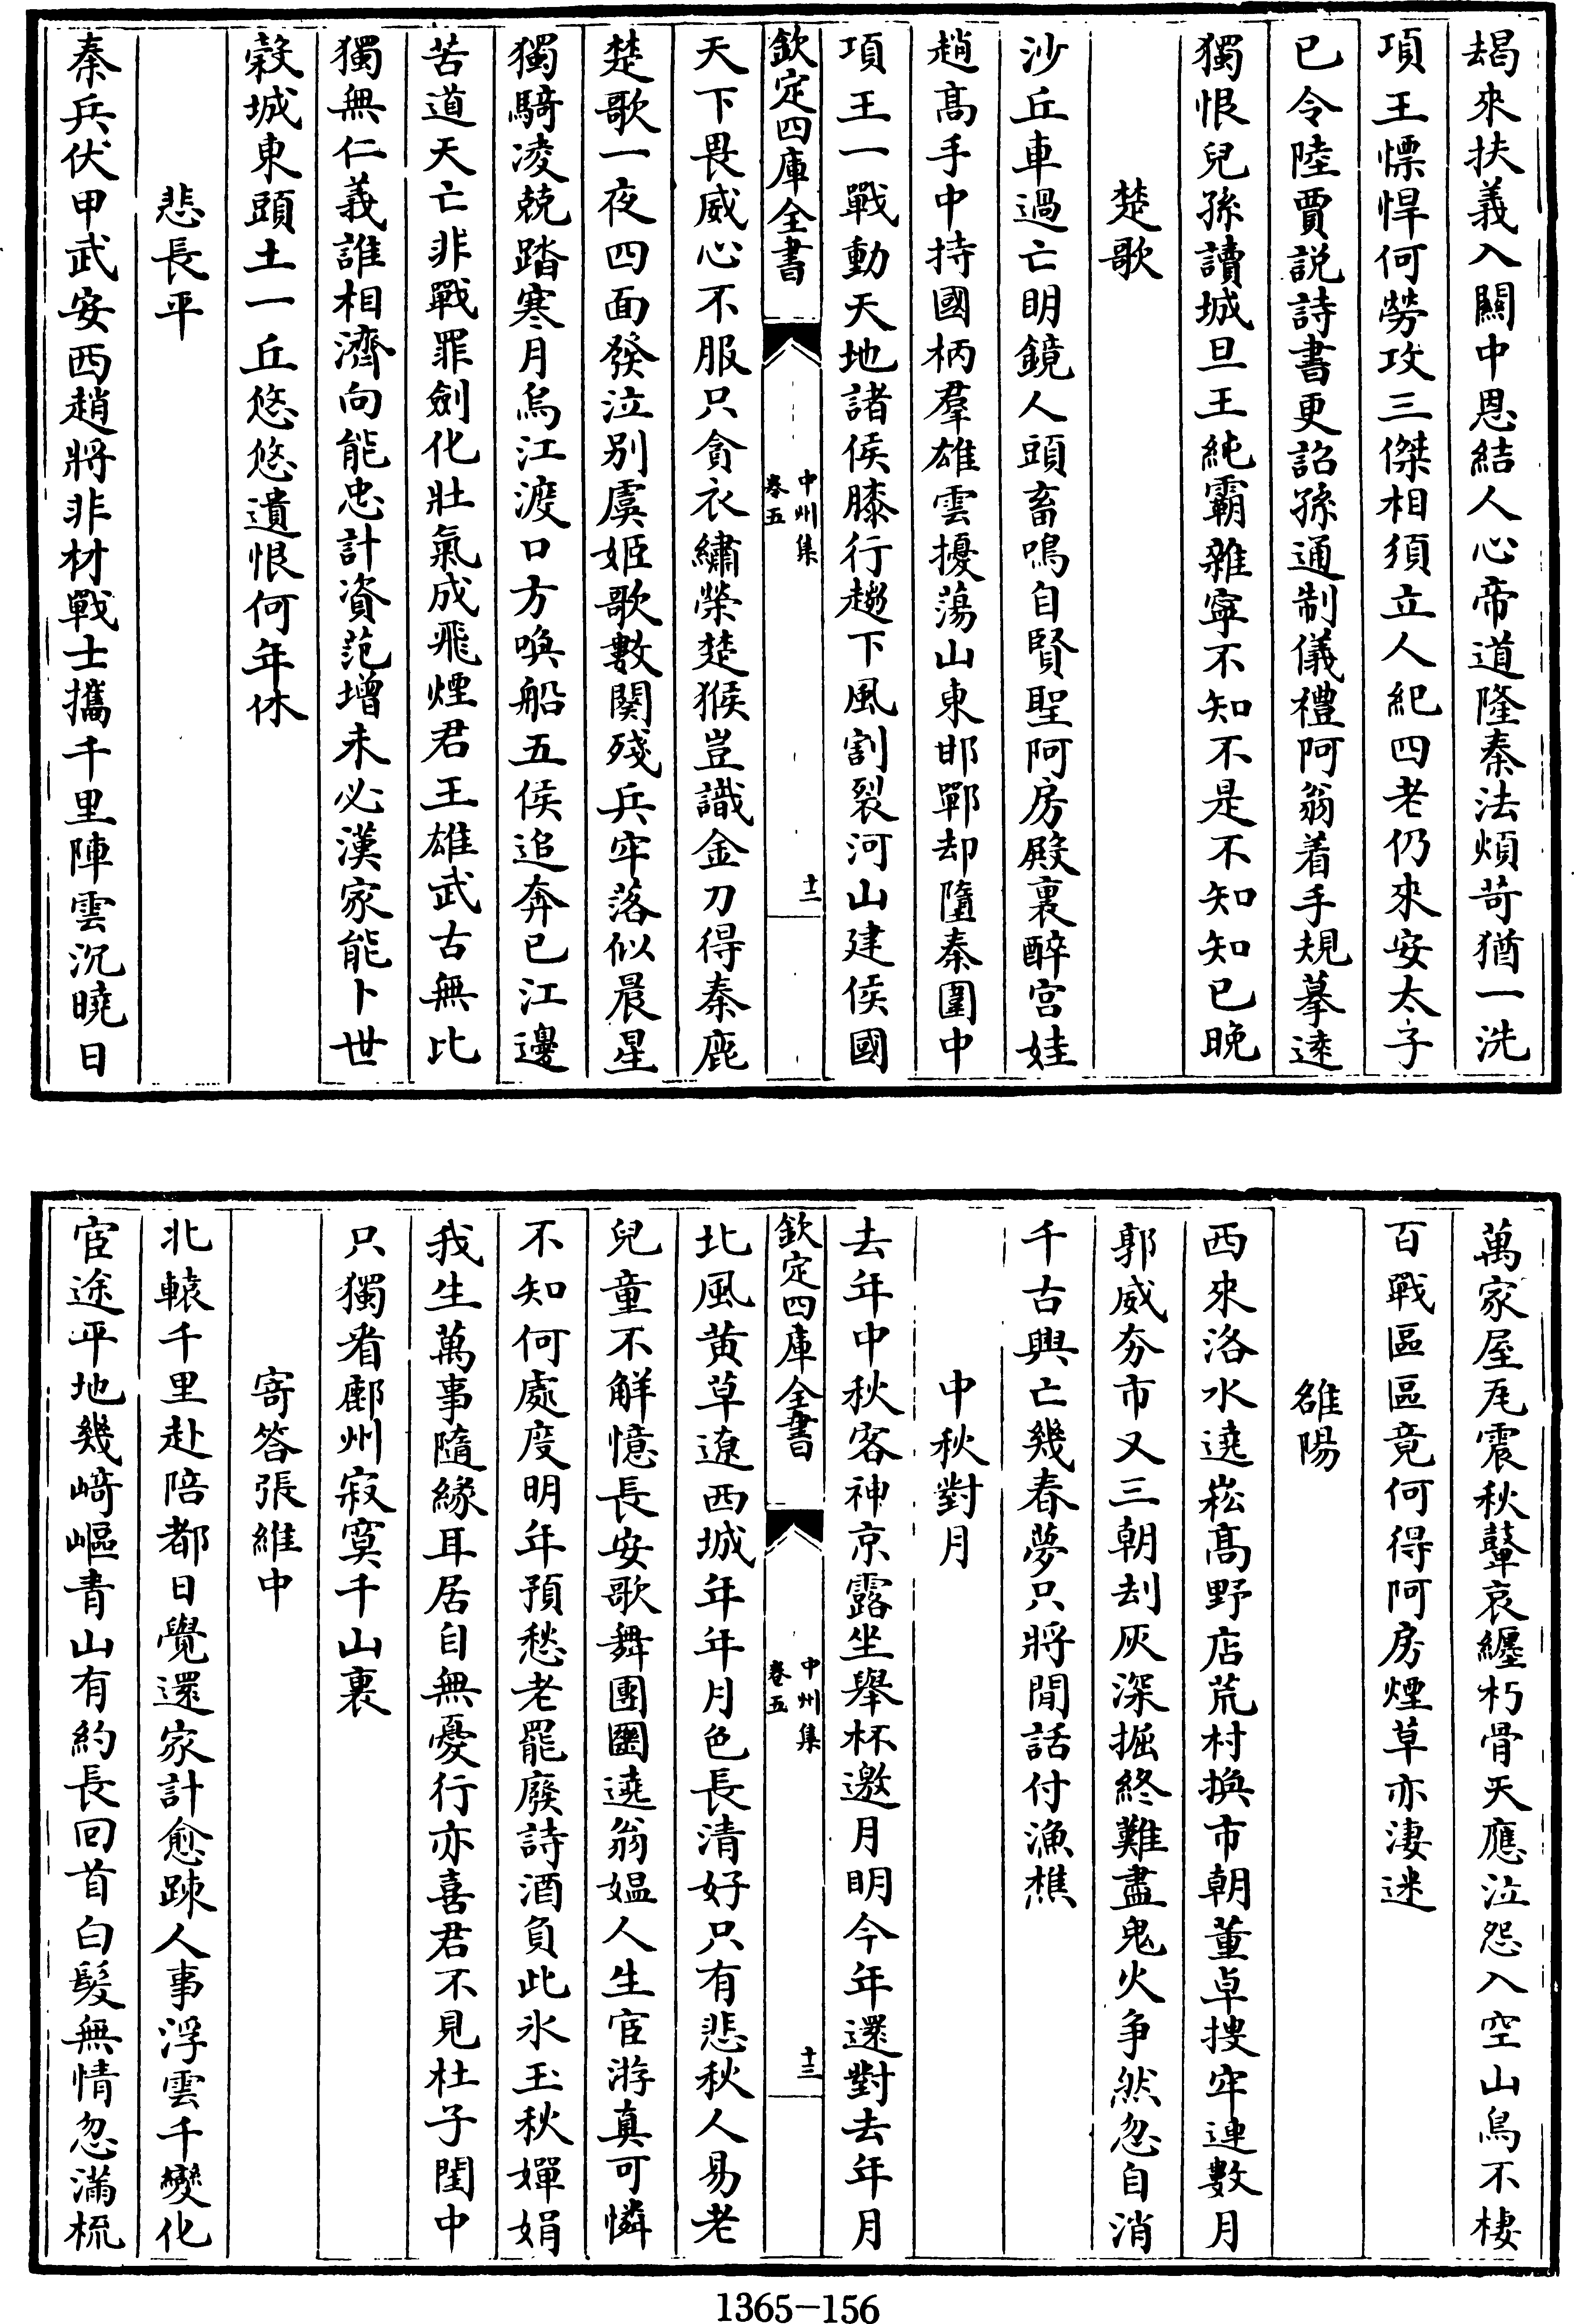 朅來扶義入關中恩結人心帝道隆秦法煩苛猶一洗
項王慓悍何勞攻三傑相須立人紀四老仍來安太子
已令陸賈説詩書更詔孫通制儀禮阿翁着手規摹逺
獨恨兒孫讀城旦王純霸雜寜不知不是不知知已晩
楚歌
沙丘車過亡明鏡人頭畜鳴自賢聖阿房殿裏醉宫娃
趙髙手中持國柄羣雄雲擾蕩山東邯鄲却墮秦圍中
項王一戰動天地諸侯膝行趨下風割裂河山建侯國
欽定四庫全書
中州集
卷五
十二
天下畏威心不服只貪衣繡榮楚猴豈識金刀得秦鹿
楚歌一夜四面發泣别虞姬歌數闋殘兵牢落似晨星
獨騎凌兢踏寒月烏江渡口方喚船五侯追奔已江邊
苦道天亡非戰罪劍化壯氣成飛煙君王雄武古無比
獨無仁義誰相濟向能忠計資范增未必漢家能卜世
穀城東頭土一丘悠悠遺恨何年休
悲長平
秦兵伏甲武安西趙將非材戰士攜千里陣雲沉曉日
萬家屋瓦震秋鼙哀纏朽骨天應泣怨入空山鳥不棲
百戰區區竟何得阿房煙草亦凄迷
雒陽
西來洛水遶崧髙野店荒村換市朝董卓搜牢連數月
郭威夯市又三朝刦灰深掘終難盡鬼火争然忽自消
千古興亡幾春夢只將閒話付漁樵
中秋對月
去年中秋客神京露坐舉杯邀月明今年還對去年月
欽定四庫全書
中州集
卷五
十三
北風黄草遼西城年年月色長清好只有悲秋人易老
兒童不解憶長安歌舞團圞遶翁媪人生宦游真可憐
不知何處度明年預愁老罷廢詩酒負此氷玉秋嬋娟
我生萬事隨緣耳居自無憂行亦喜君不見杜子閨中
只獨看鄜州寂寞千山裏
寄答張維中
北轅千里赴陪都日覺還家計愈踈人事浮雲千變化
宦途平地幾﨑嶇青山有約長回首白髮無情忽滿梳
1365-156